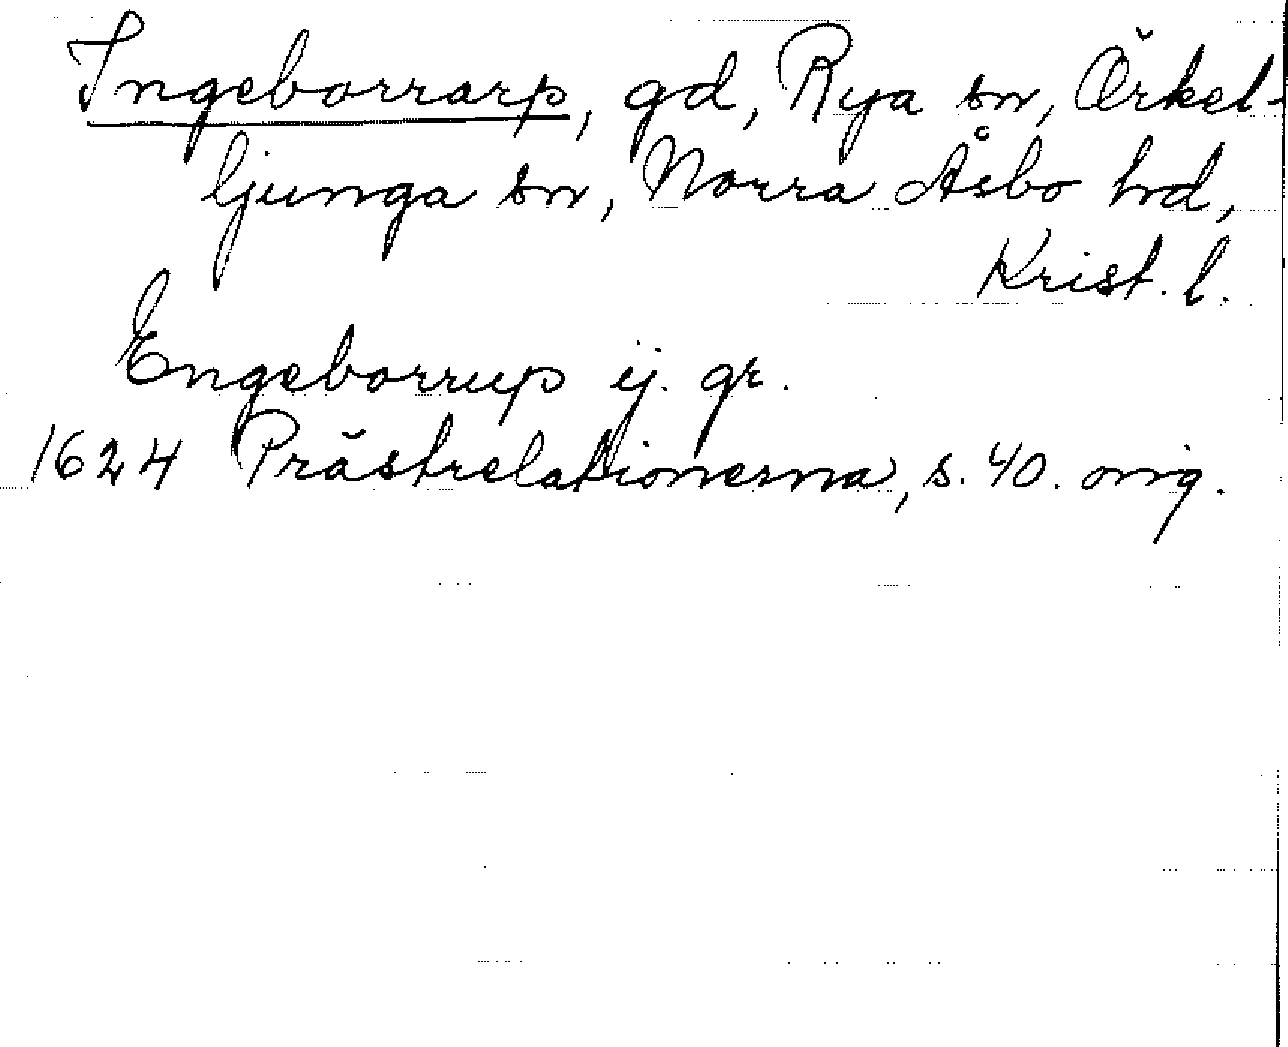 Ingeborrarp, gd, Rya sn, Örkel-
ljunga sn, Norra Åsbo hd,
Krist. l.
Engeborrup ij. gr.
1624 Prästrelationerna, s. 40. orig.